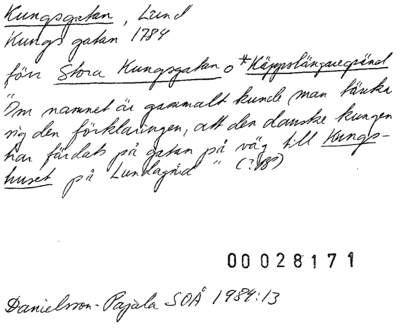 Kungsgatan, Lund
Kungsgatan 1784
förr Stora Kungsgatan o *Käppslängaregränd
"Om namnet är gammalt kunde man tänka
sig den förklaringen, att den danske kungen
har färdats på gatan på väg till Kungs-
huset på Lundagård" (
00028171
Danielsson-Pajala SOÅ 1984:13